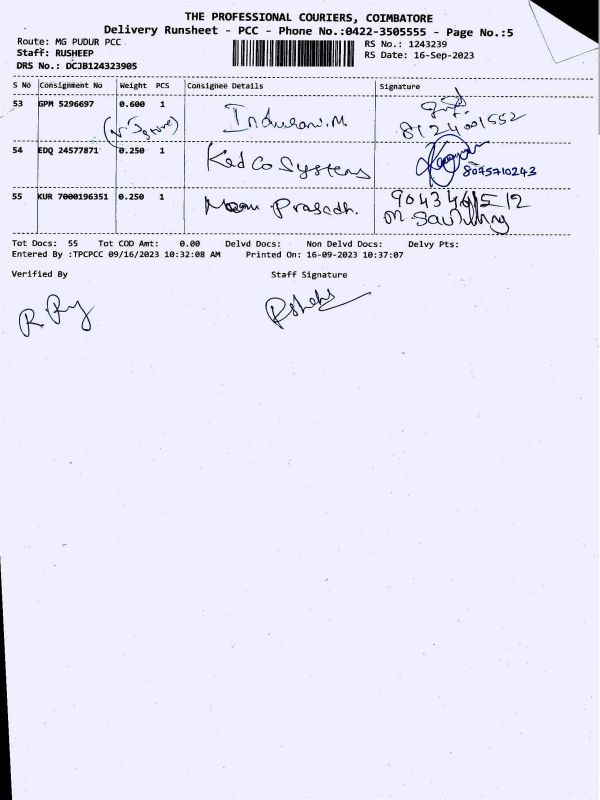 THE PROFESSIONAL COURIERS, COIMBATORE
Delivery Runsheet - PCC - Phone No.:0422-3505555 - Page No.:5
Route: MG PUDUR PCC
RS No.: 1243239
Staff: RUSHEEP
RS Date: 16-Sep-2023
DRS No.: DCJB124323905
S No Consignment No Weight PCS Consignee Details Signature
53 GPM 5296697 0.600 1 Indurani.M.
8124001552
54 EDQ 24577871 0.250 1 Kad Co Systems
8075710243
55 KUR 7000196351 0.250 1 Prasadh.
Tot Docs: 55 Tot COD Amt: 0.00 Delvd Docs: Non Delvd Docs: Delvy Pts:
Entered By :TPCPCC 09/16/2023 10:32:08 AM Printed On: 16-09-2023 10:37:07
Verified By Staff Signature